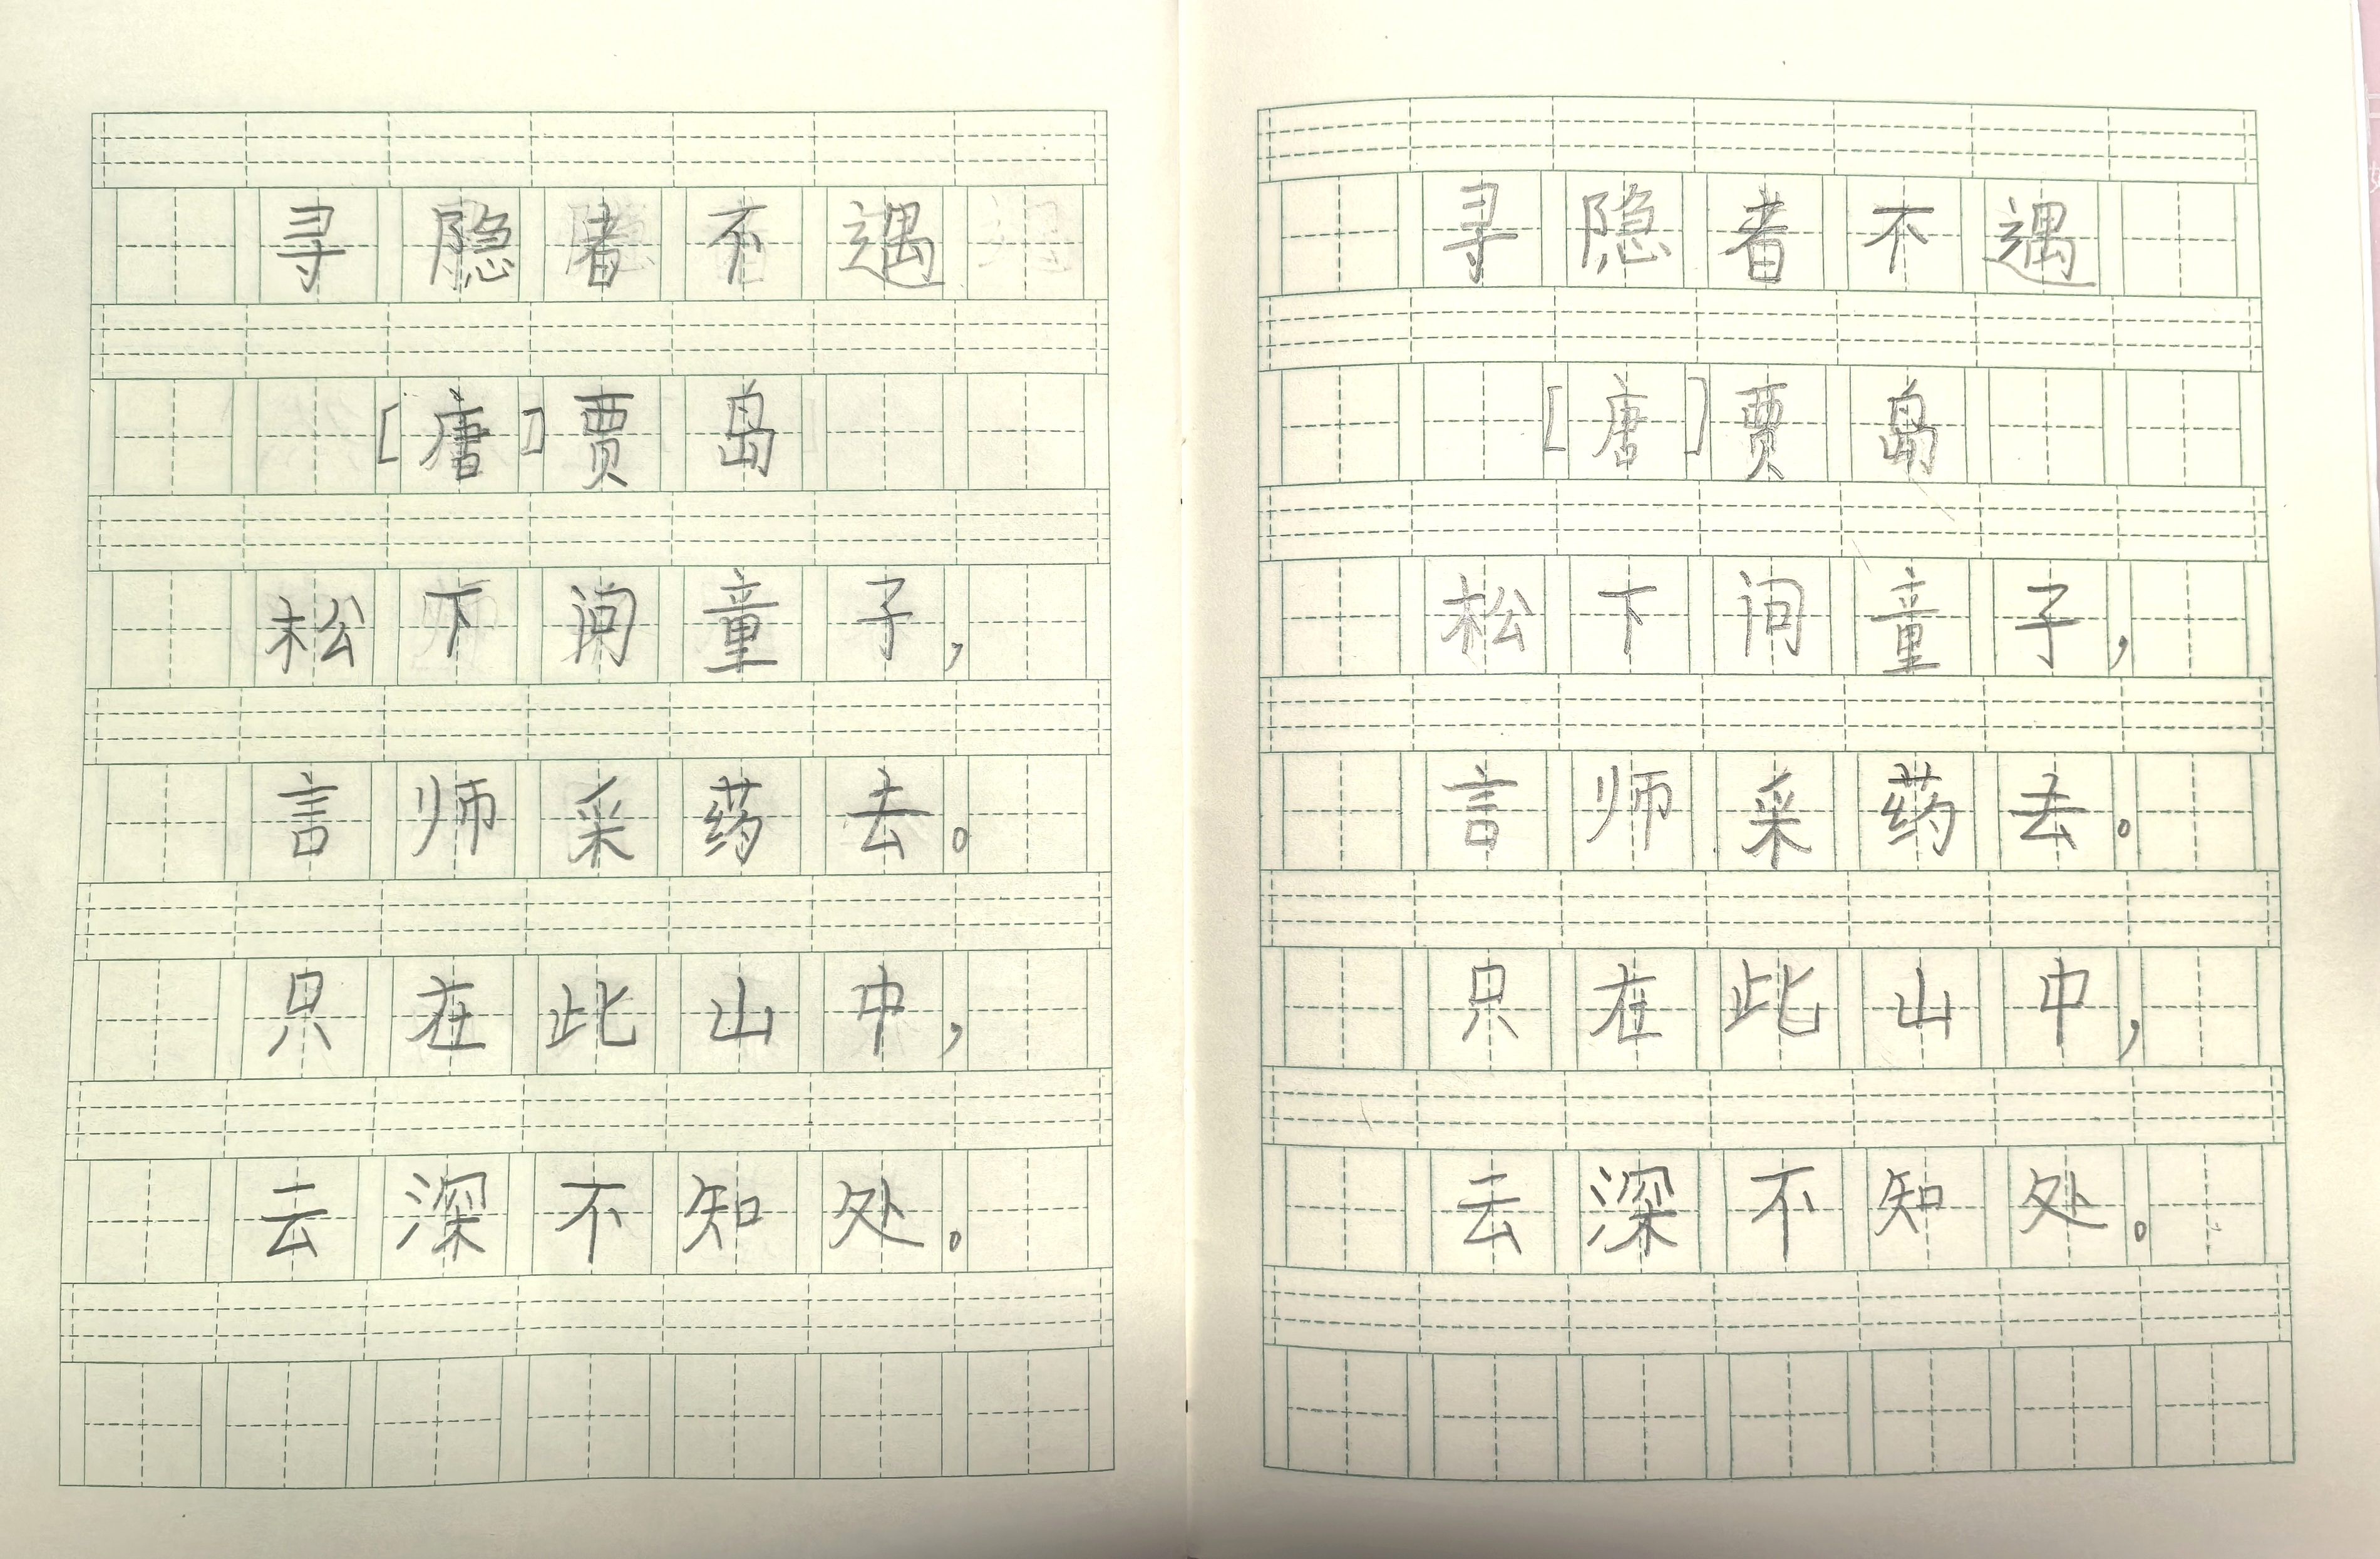 寻隐者不遇
[唐]贾岛
松下问童子，
言师采药去。
只在此山中，
云深不知处。
寻隐者不遇
[唐]贾岛
松下问童子，
言师采药去。
只在此山中，
云深不知处。